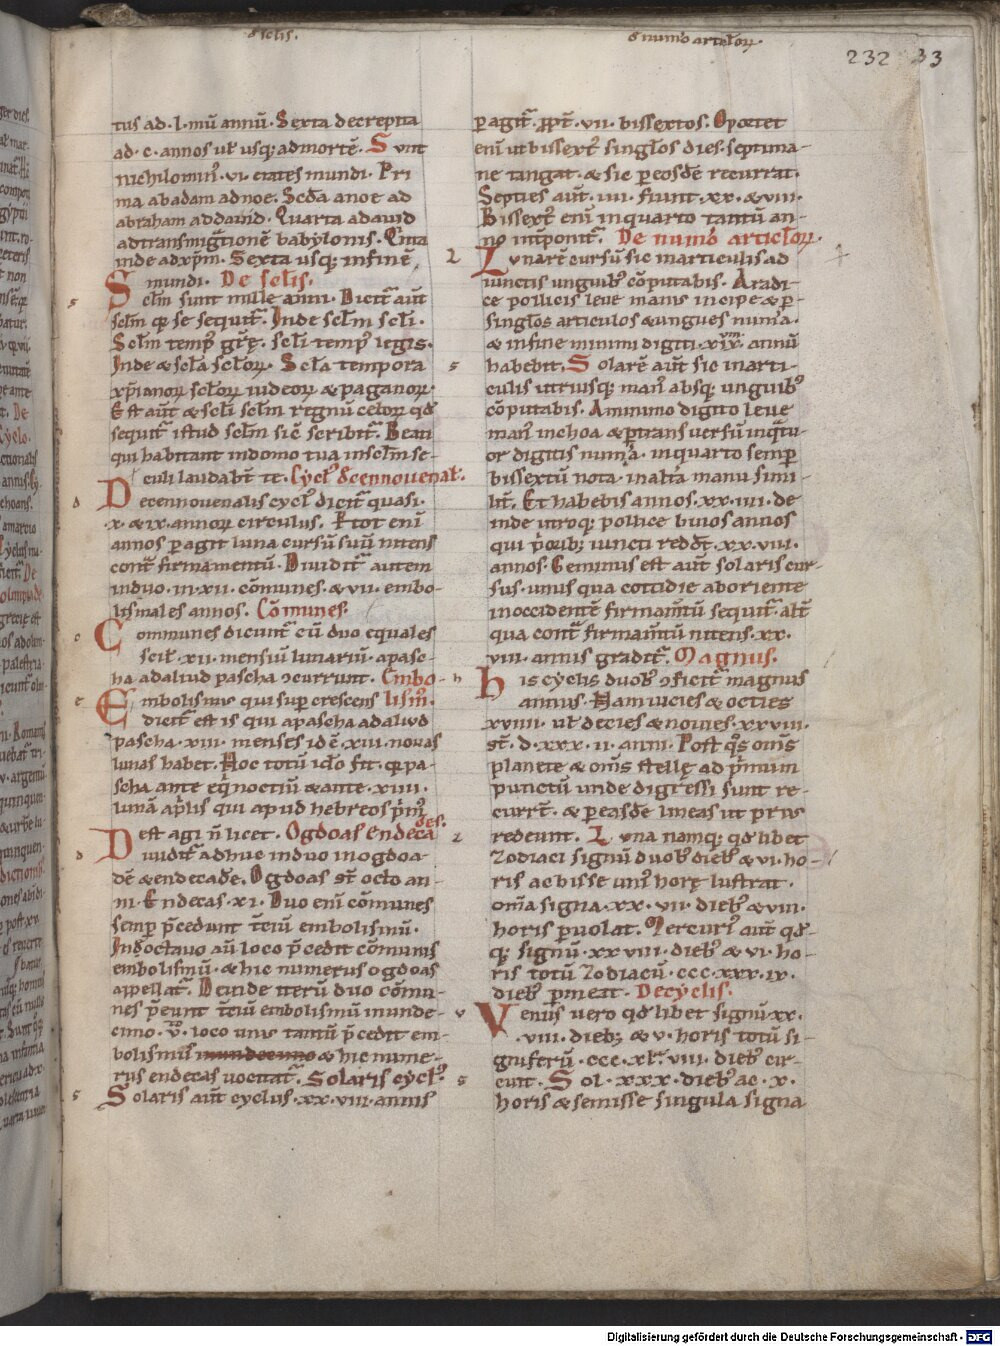 d᷒ sclis.
d᷒ num̅o articl̅oꝝ.
232 33
tus ad · l · mū annū · Sexta decrepita
ad · c · annos ul̅ usq; ad mortē. Sunt
nichilomin᷒ · vi · etates mundi · Pri
ma ab adam ad noe · Sc̅da a noe ad
abraham ad dauid · Quarta a dauid
ad transmig̅tionē babylonis · Q̅nta
inde ad xp̅m. Sexta usq; in finē
mundi. De sclis.
Sclm̅ sunt mille anni · Dicit̅ aut̅
sclm̅ qꝫ se sequit̅. Inde sclm̅ scli̅ ·
Sclm̅ temp᷒ gr̅ę · scli̅ temp᷒ legis ·
Inde & scl̅a scl̅oꝝ · Scl̅a tempora
xp̅ianoꝝ scl̅oꝝ iudeoꝝ & paganoꝝ ·
Est aut̅ & scli̅ sclm̅ regnū celoꝝ qd̅
sequit̅ istud sclm̅ sic̅ scribit̅. Beati
qui habitant in domo tua in sclm̅ se-
culi laudabt̅ te · Cycl᷒ decennouenal̅.
Decennouenalis cycl᷒ dicit̅ quasi ·
x · & ix · annoꝝ circulus. Ptot eni̅
annos pagit luna cursū suū nitens
cont̅ firmamentū · Diuidit̅ autem
in duo · in · xii · cōmunes · & · vii · embo-
lismales annos · Cōmunes.
Communes dicunt̅ cū duo equales
scil̅ · xii · mensiū lunariū · a pasc-
ha ad aliud pascha ɔcurrunt. Embo-
Embolismus qui sup crescens lism᷒.
dicit̅ est is qui a pascha ad aliud
pascha · xiii · menses id ē · xiii · nouas
lunas habet. Hoc totū icl̅o fit · qꝫ pa-
scha ante eq̅noctiū & ante · xiiii ·
lunā ap̅lis qui apud hebreos p̅m᷒
est agi n̅ licet. Ogdoas endecades.
Diuidit̅ adhuc in duo in ogdoa-
dē & endecadē. Ogdoas st̅ octo an-
ni · Endecas · xi · Duo eni̅ cōmunes
semp p̅cedunt t̅ciū embolismū ·
In octauo au̅ loco p̅cedit cōmunis
embolismū · & hic numerus ogdoas
appellat̅. Deinde iterū duo cōmu-
nes p̅eunt t̅ciū embolismū in unde-
cimo · v̊ · loco unus tantū p̅cedit em-
bolismū in undecimo & hic nume-
rus endecas uocitat̅. Solaris cycl᷒
Solaris aut̅ cyclus · xx · viii · annis
pagit̅ · ppt̅ · vii · bissextos. Oportet
eni̅ ut bissext᷒ singl̅os dies · septima-
ne tangat · & sic p eosdē recurrat ·
Septies aut̅ · iiii · fiunt · xx · & viii ·
Bissext᷒ eni̅ in quarto tantū an-
no int̅ponit̅. De num̅o articl̅oꝝ.
Lunarē cursū sic in articulis ad
iunctis unguib᷒ cōputabis · A radi-
ce pollicis leue manis incipe & p-
singl̅os articulos & ungues num̅a ·
& in fine minimi digiti · xix · annū
habebit. Solarē aut̅ sic in arti-
culis utriusq; man᷒ absq; unguib᷒
cōputabis · A minimo digito leue
man᷒ inchoa & ptransuersū in q̅tu-
or digitis num̅a · in quarto semp
bissextū nota · in alt̅a manu simi-
lit̅ · Et habebis annos · xx · iiii · de
inde utroq; pollice binos annos
qui p̅orib; iuncti reddt̅ · xx · viii ·
annos · Geminus est aut̅ solaris cur-
sus · unus qua cottidie ab oriente
in occidentē firmam̅tū sequit̅ · alt̅
qua cont̅ firmam̅tū nitens · xx ·
viii · annis gradit̅. Magnus.
His cyclis duob᷒ ɔficit̅ magnus
annus · Nam uicies & octies
xviiii · ul̅ decies & nouies · xxviii ·
st̅ · d · xxx · ii · anni · Post q̅s om̅s
planete & om̅s stellę ad p̅mum
punctū unde digressi sunt re-
currt̅ · & p easdē lineas ut prius
redeunt. Luna namq; qd̅ libet
zodiaci signū duob᷒ dieb᷒ & vi · ho-
ris ac bisse uni᷒ horę lustrat ·
om̅a signa · xx · vii · dieb᷒ & viii ·
horis puolat. Mercuri᷒ aut̅ qd̅-
q; signū · xx viii · dieb᷒ & vi · ho-
ris totū zodiacū · ccc · xxx · ix ·
dieb᷒ pmeat · De cyclis.
Venus uero qd̅ libet signū xx ·
· viii · dieb; & v · horis totū si-
gniferū · ccc · xl̅ · viii · dieb᷒ cir-
cuit · Sol · xxx · dieb᷒ ac · x ·
horis & semisse singula signa
Digitalisierung gefördert durch die Deutsche Forschungsgemeinschaft - DFG